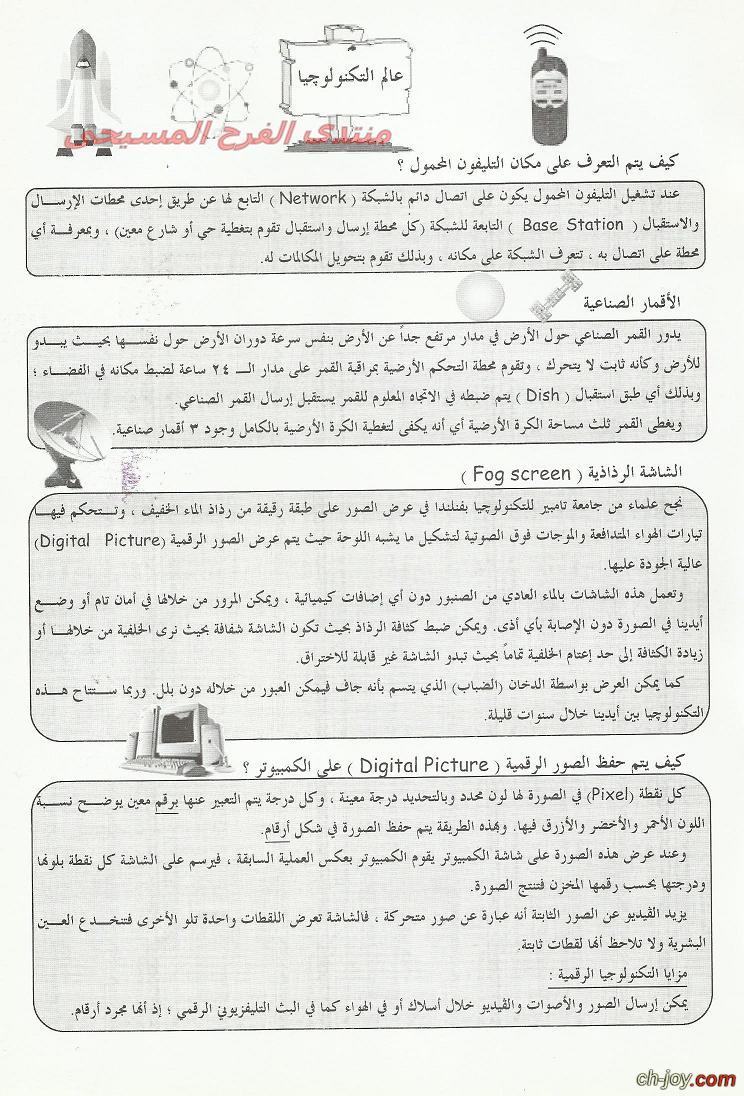 عالم التكنولوچيا
منتدى الفرح المسيحى
كيف يتم التعرف على مكان التليفون المحمول ؟
عند تشغيل التليفون المحمول يكون على اتصال دائم بالشبكة ( Network ) التابع لها عن طريق إحدى محطات الإرسال
والاستقبال ( Base Station ) التابعة للشبكة (كل محطة إرسال واستقبال تقوم بتغطية حي أو شارع معين) ، وبمعرفة أي
محطة على اتصال به ، تتعرف الشبكة على مكانه ، وبذلك تقوم بتحويل المكالمات له.
الأقمار الصناعية
يدور القمر الصناعي حول الأرض في مدار مرتفع جداً عن الأرض بنفس سرعة دوران الأرض حول نفسها بحيث يبدو
للأرض وكأنه ثابت لا يتحرك ، وتقوم محطة التحكم الأرضية بمراقبة القمر على مدار الـ ٢٤ ساعة لضبط مكانه في الفضاء ؛
وبذلك أي طبق استقبال ( Dish ) يتم ضبطه في الاتجاه المعلوم للقمر يستقبل إرسال القمر الصناعي.
ويغطى القمر ثلث مساحة الكرة الأرضية أي أنه يكفى لتغطية الكرة الأرضية بالكامل وجود ٣ أقمار صناعية.
الشاشة الرذاذية ( Fog screen )
نجح علماء من جامعة تامبير للتكنولوچيا بفنلندا في عرض الصور على طبقة رقيقة من رذاذ الماء الخفيف ، وتتحكم فيها
تيارات الهواء المتدافعة والموجات فوق الصوتية لتشكيل ما يشبه اللوحة حيث يتم عرض الصور الرقمية (Digital Picture)
عالية الجودة عليها.
وتعمل هذه الشاشات بالماء العادي من الصنبور دون أي إضافات كيميائية ، ويمكن المرور من خلالها في أمان تام أو وضع
أيدينا في الصورة دون الإصابة بأي أذى. ويمكن ضبط كثافة الرذاذ بحيث تكون الشاشة شفافة بحيث نرى الخلفية من خلالها أو
زيادة الكثافة إلى حد إعتام الخلفية تماماً بحيث تبدو الشاشة غير قابلة للاختراق.
كما يمكن العرض بواسطة الدخان (الضباب) الذي يتسم بأنه جاف فيمكن العبور من خلاله دون بلل. وربما ستتاح هذه
التكنولوچيا بين أيدينا خلال سنوات قليلة.
كيف يتم حفظ الصور الرقمية ( Digital Picture ) على الكمبيوتر ؟
كل نقطة (Pixel) في الصورة لها لون محدد وبالتحديد درجة معينة ، وكل درجة يتم التعبير عنها برقم معين يوضح نسبة
اللون الأحمر والأخضر والأزرق فيها. وبهذه الطريقة يتم حفظ الصورة في شكل أرقام.
وعند عرض هذه الصورة على شاشة الكمبيوتر يقوم الكمبيوتر بعكس العملية السابقة ، فيرسم على الشاشة كل نقطة بلونها
ودرجتها بحسب رقمها المخزن فتنتج الصورة.
يزيد الڤيديو عن الصور الثابتة أنه عبارة عن صور متحركة ، فالشاشة تعرض اللقطات واحدة تلو الأخرى فتنخدع العين
البشرية ولا تلاحظ أنها لقطات ثابتة.
مزايا التكنولوجيا الرقمية :
يمكن إرسال الصور والأصوات والڤيديو خلال أسلاك أو في الهواء كما في البث التليفزيوني الرقمي ؛ إذ أنها مجرد أرقام.
ch-joy.com